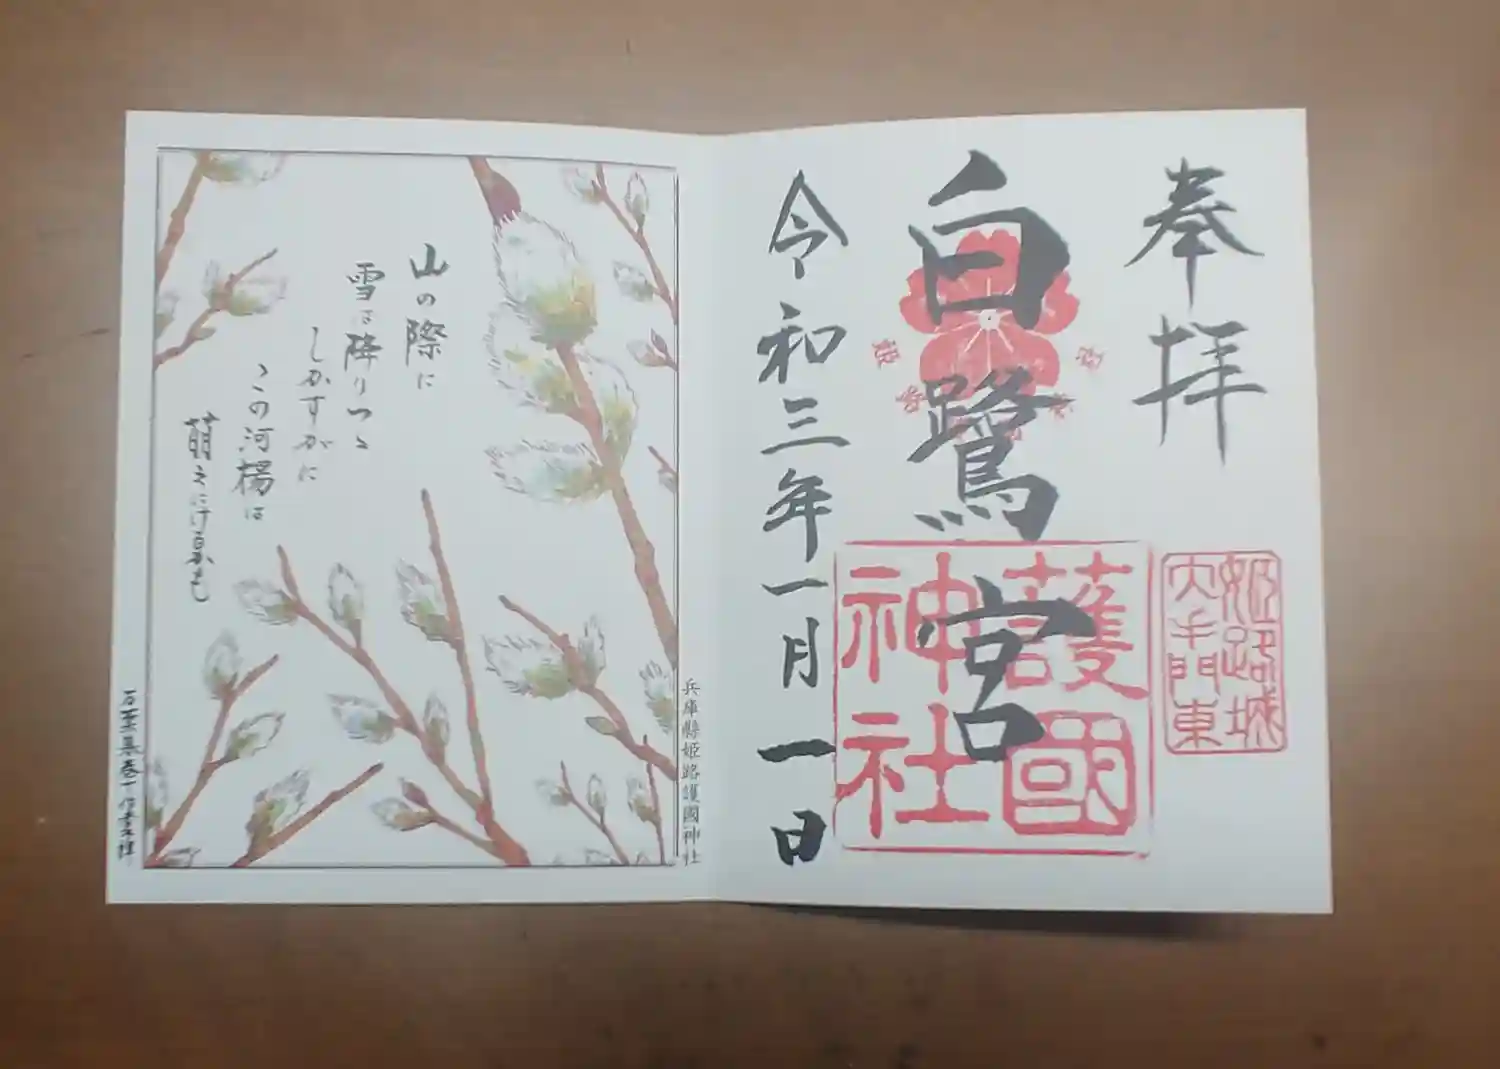 奉拝
白鷺宮
令和三年一月一日
姫路城
大手門東
護國
神社
山の際に
雪は降りつゝ
しかすがに
この河楊は
萌えにけるかも
兵庫縣姫路護國神社
万葉集巻十作者不詳